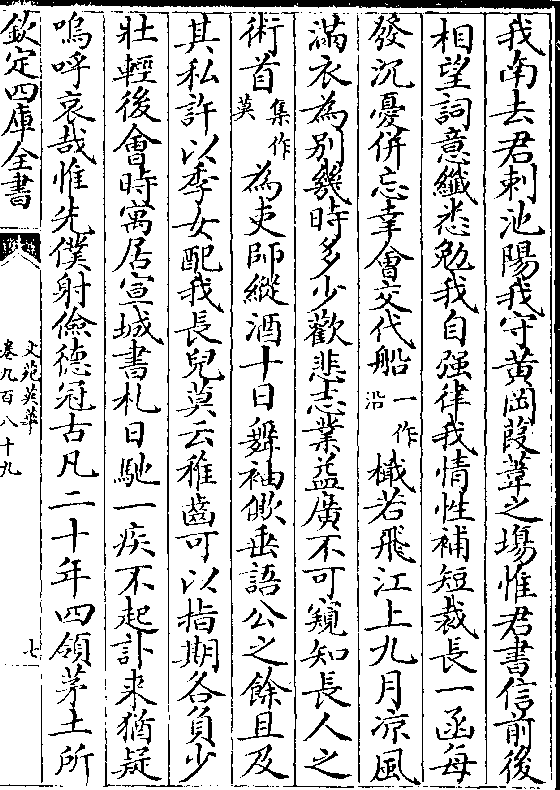 我南去君刺池陽我守黄岡葭葦之塲惟君書信前後
相望詞意纖悉勉我自强律我情性補短裁長一函每
發沉憂併忘幸會交代船一作沿檝若飛江上九月凉風
滿衣為别幾時多少歡悲志業益廣不可窺知長人之
術首集作莫為吏師縱酒十日舞袖僛垂語公之餘且及
其私許以季女配我長兒莫云稚齒可以指期各負少
壯輕後會時寓居宣城書札日馳一疾不起訃来猶疑
嗚呼哀哉惟先僕射儉德冠古凡二十年四領茅土所
欽定四庫全書
文苑英華
卷九百八十九
七